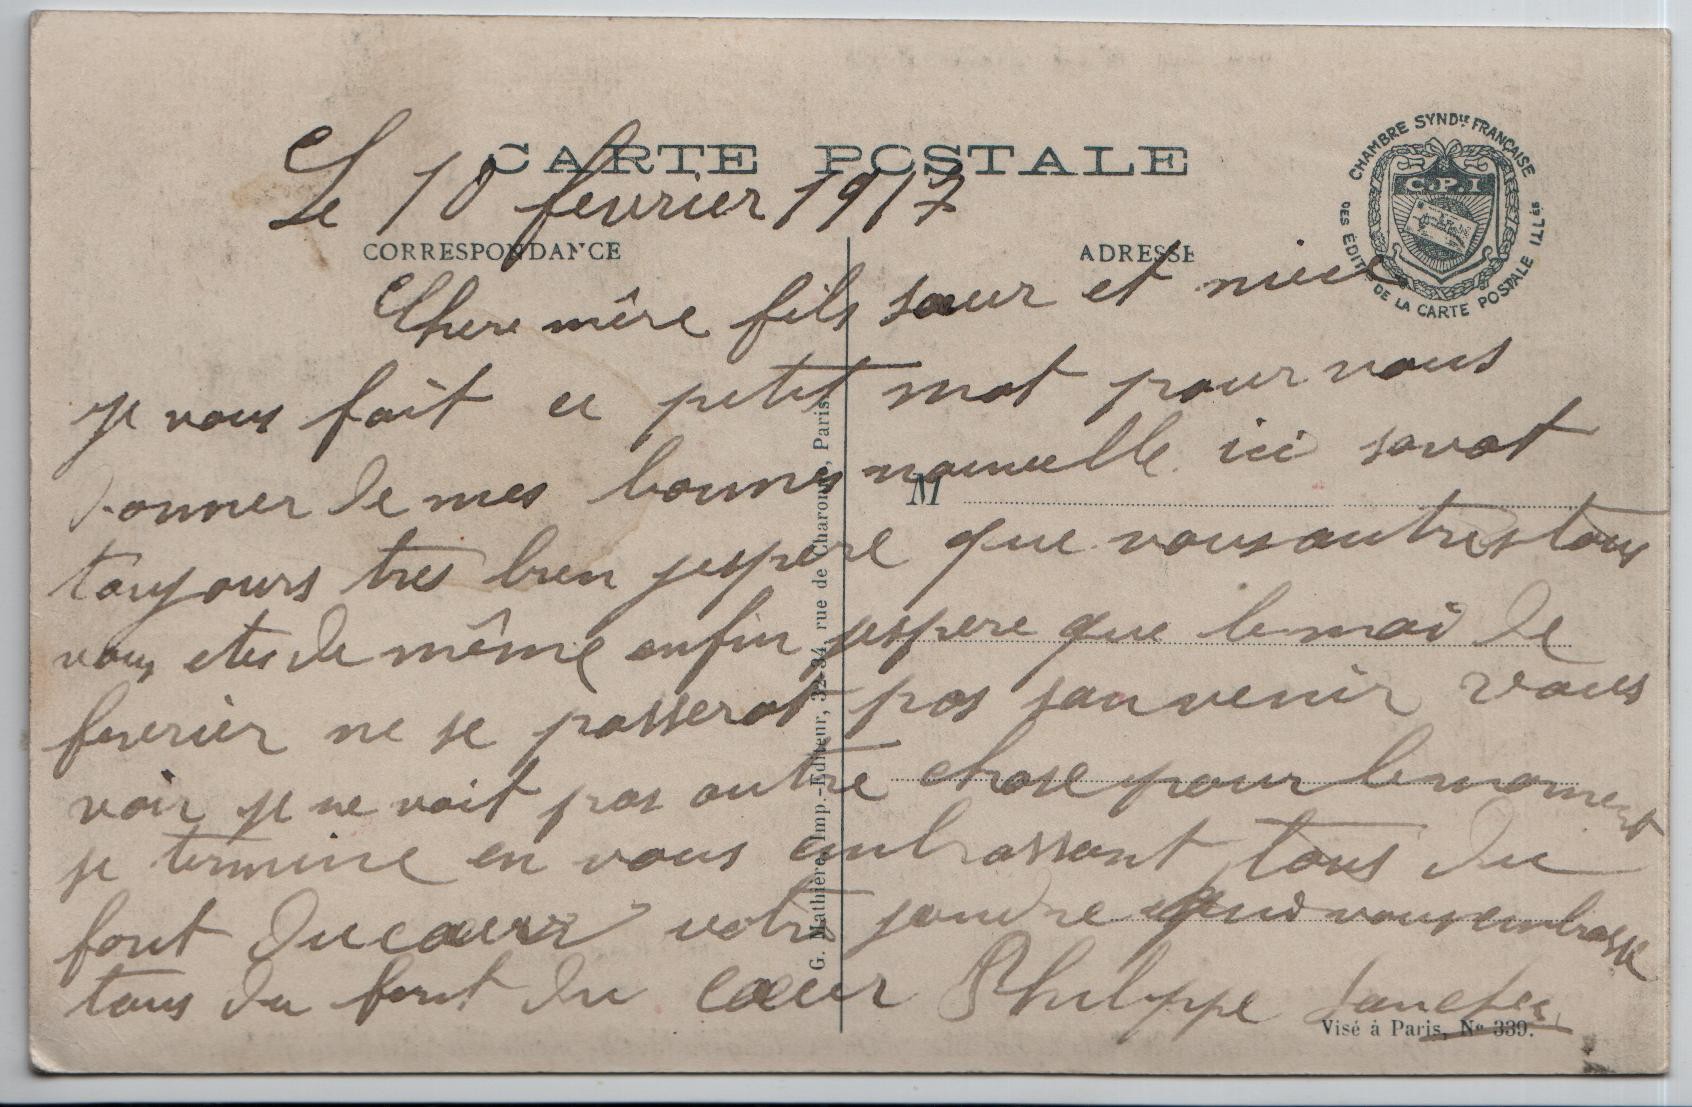 CARTE POSTALE
Le 10 fevrier 1917
CORRESPONDANCE
ADRESSE
CHAMBRE SYND.LE FRANÇAISE
DES ÉDIT DE LA CARTE POSTALE ILL.ÉE
C.P.I
Chere mêre fils sœur et niece
je vous fait ce petit mot pour vous
donner de mes bonnes nouvelle ici savat
M
toujours tres bien jespere que vous autres tous
vous etes de même enfin jespere que le moi de
fevrier ne se passerat pas san venir vous
voir je ne voit pas autre chose pour le moment
je termine en vous embrassant tous du
font du cœur votre jendre qui vous embrasse
tous du font du cœur Philippe Sanchez
G. Mathière, Imp.-Editeur, 32-34, rue de Charonne, Paris
Visé à Paris, No 339.